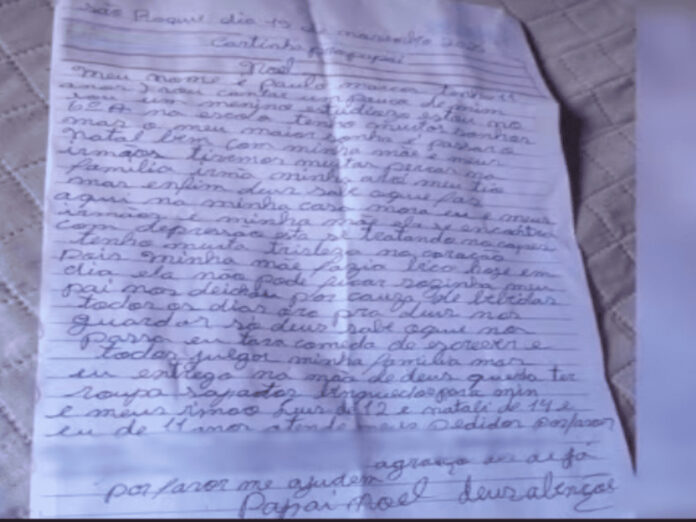 São Roque dia 19 de novembro
Cartinha pra papai
Noel
Meu nome e Paulo marcos tenho 11
anos) vou contar um pouco de mim
sou um menino estudioso estou no
6º A na escola tenho muitos sonhos
mas o meu maior sonho e passar o
Natal bem com minha mãe e meus
irmãos tivemos muitas percas na
família irmã minha até meu tio
mas enfim deus sabe oque faz
aqui na minha casa mora eu e meus
irmãos e minha mãe ela se encontra
com depressão está se tratando no capes
tenho muita tristeza no coração
pois minha mãe fazia bico hoje em
dia ela não pode ficar sozinha meu
pai nos deichou por cauza de bebidas
todos os dias oro pra deus nos
guardar so deus sabe oque nos
passa eu tava comedo de escrever e
todos juegor minha família mas
eu entrego na mão de deus queria ter
roupa sapatos brinquedos para min
e meus irmao de 12 e natali de 14 e
eu de 11 anos atende meus pedidos por favor
agraeço desde já
por favor me ajudem
Papai noel deus abençoe